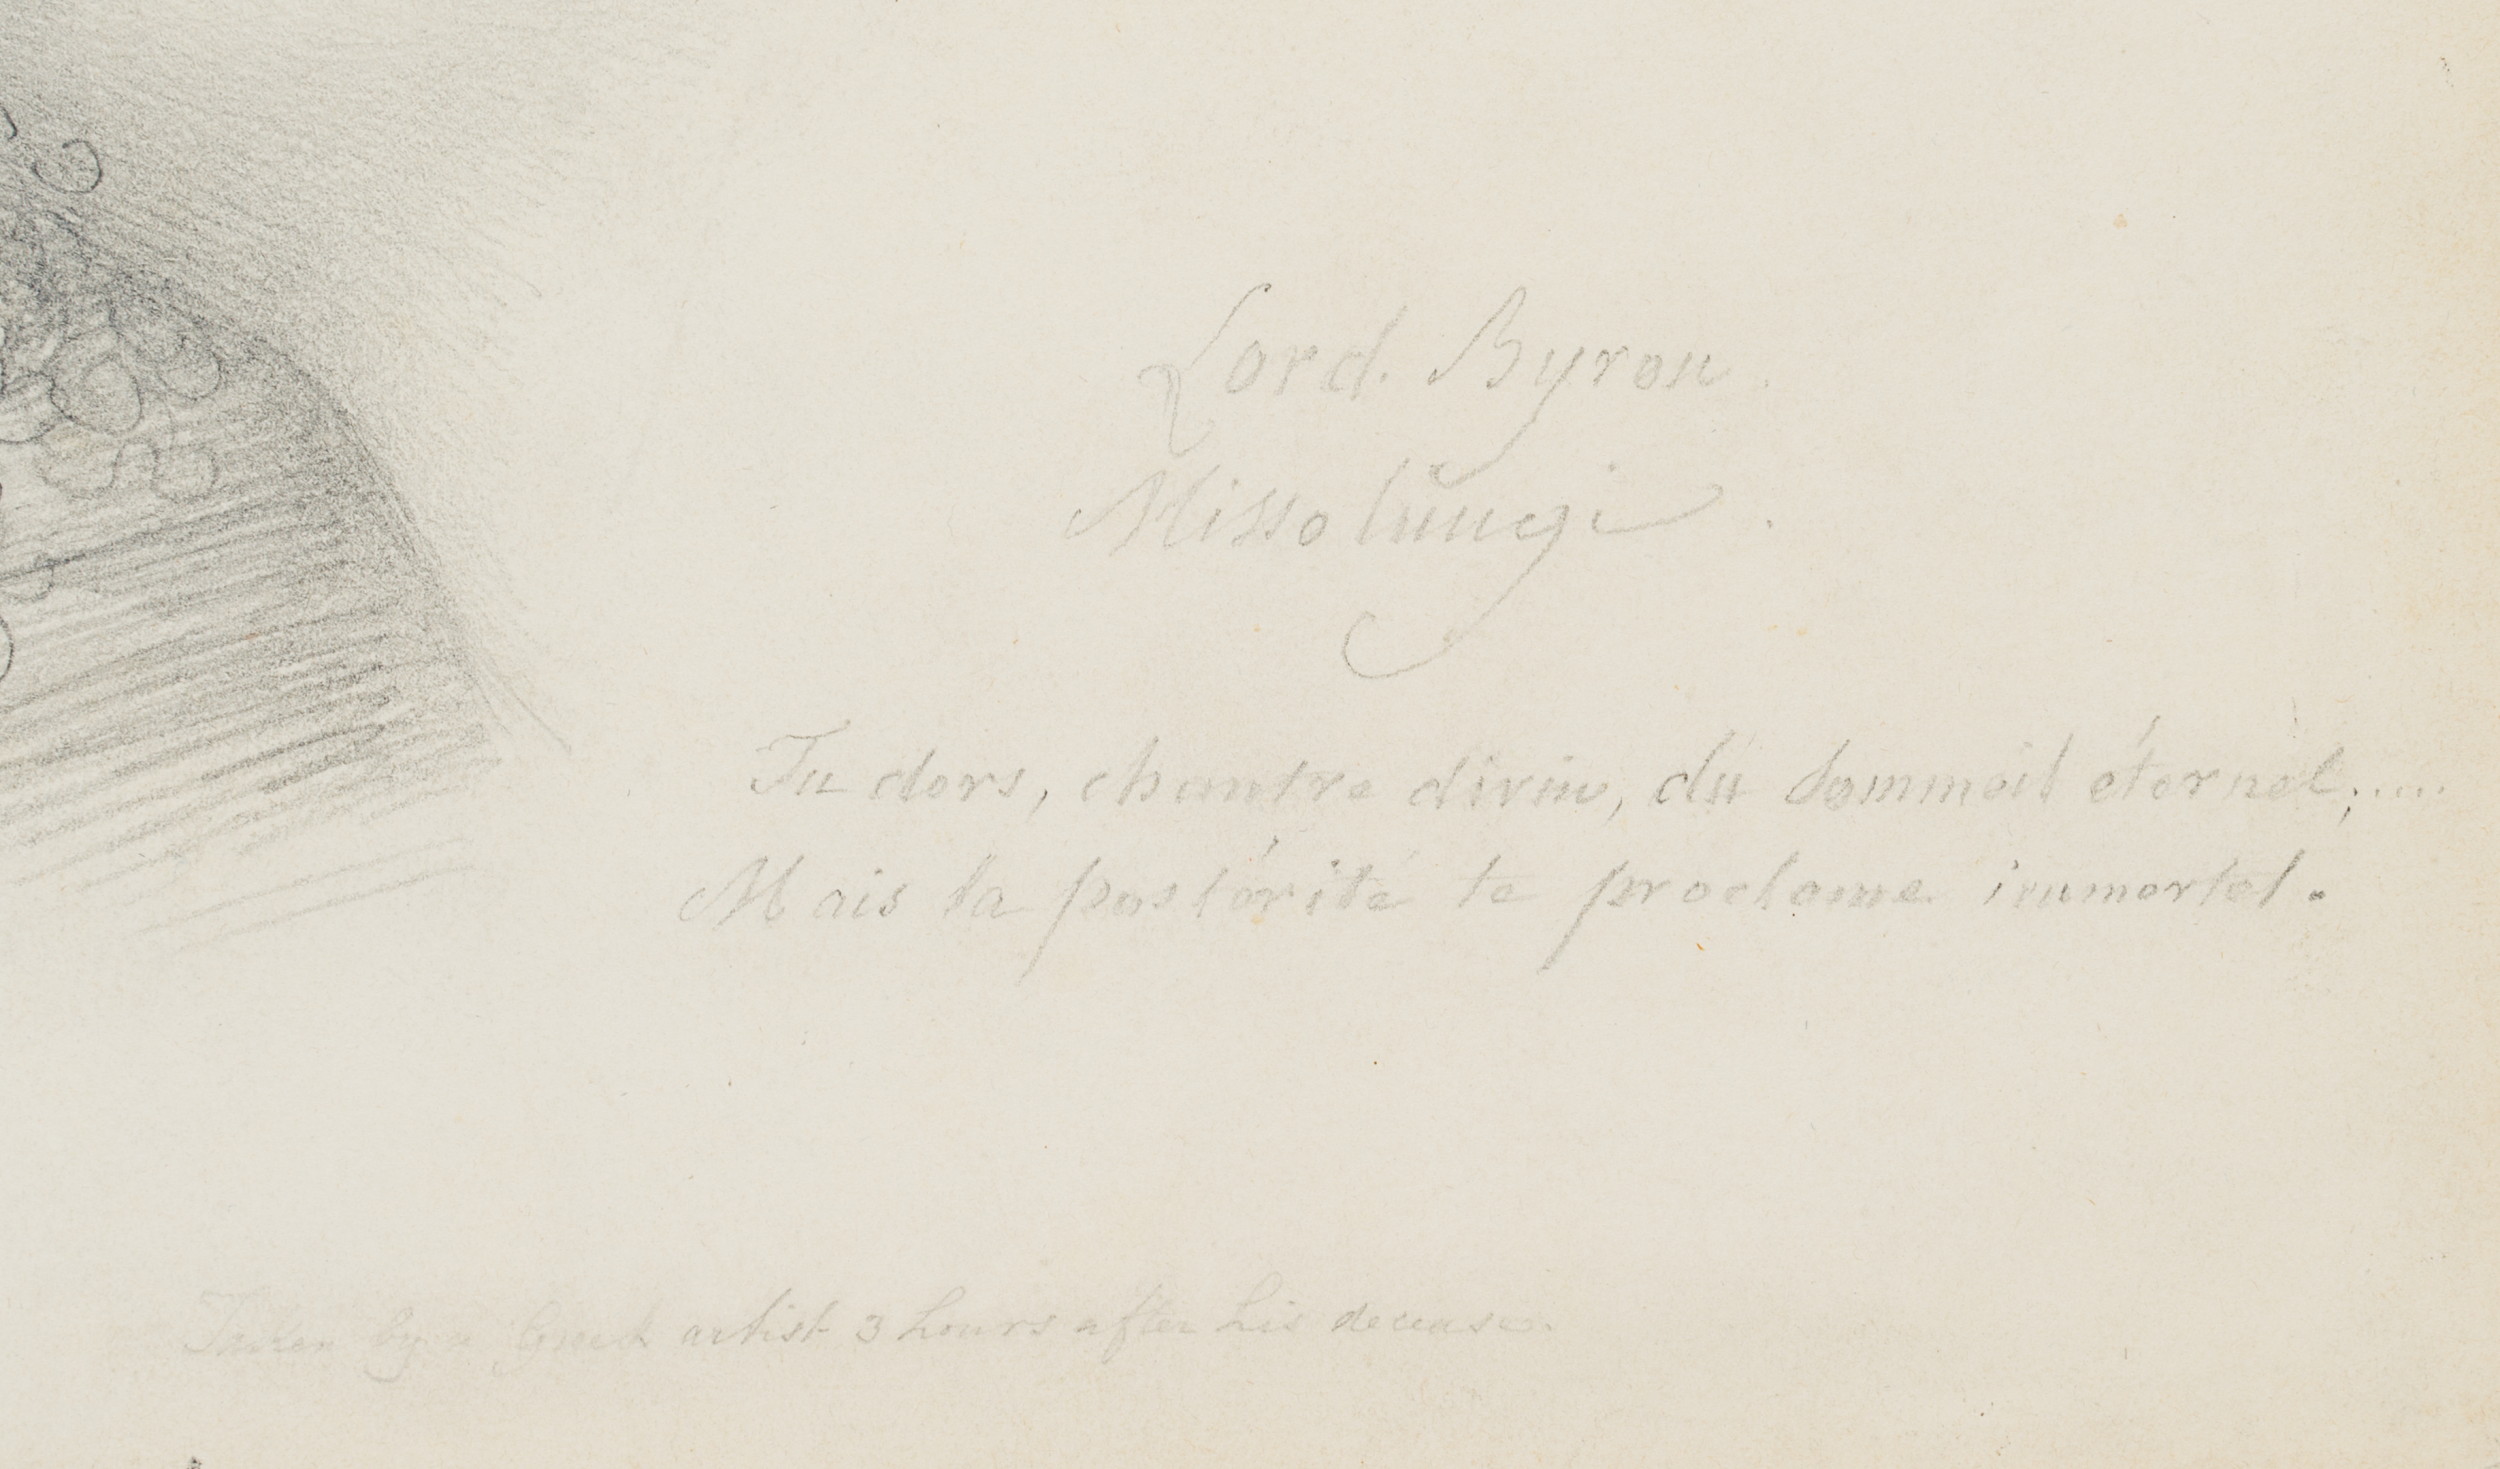 Lord. Byron.
Missolŭngi.
Tu dors, chantre divin, dŭ sommeil éternel;.....
Mais la postérité te proclame immortel.
Taken by a Greek artist 3 hours after his decease.